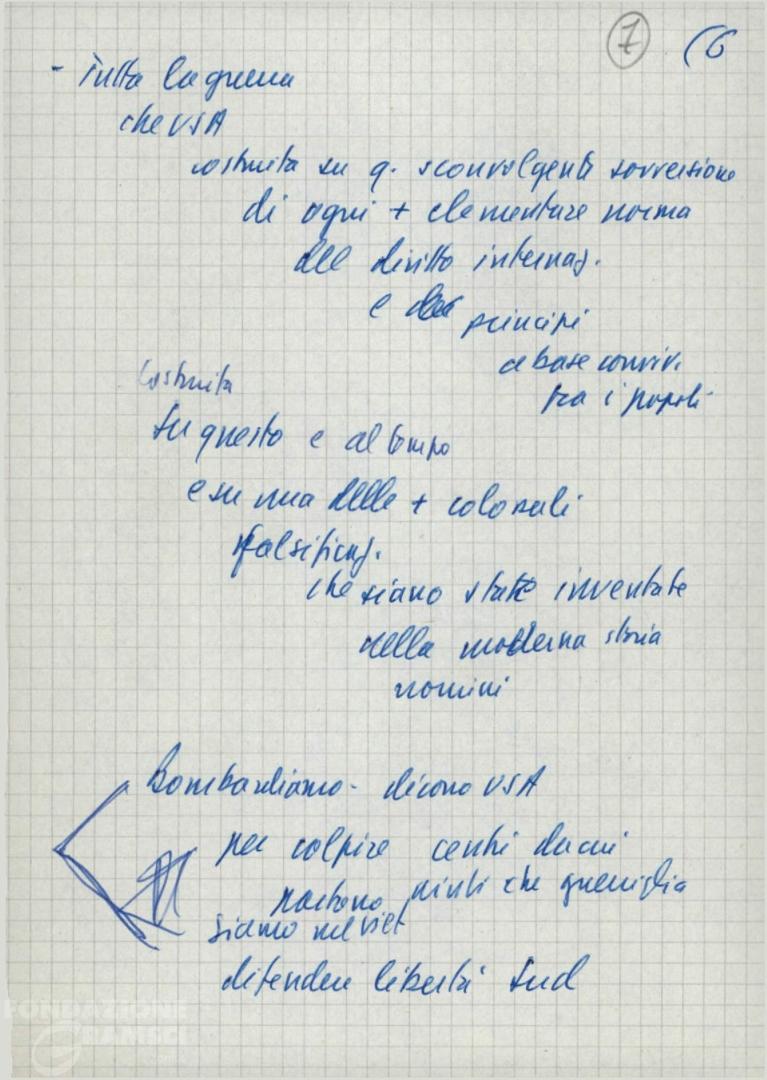 7 (6
- Tutta la guerra
che USA
costruita su q. sconvolgente sovversione
di ogni + elementare norma
del diritto internaz.
e dei principi
a base conviv.
tra i popoli
Costruita
su questo e al tempo
e su una delle + colossali
falsificaz.
che siano state inventate
della moderna storia
uomini
Bombardiamo - dicono USA
per colpire centri da cui
partono aiuti che guerriglia
siamo nel Viet
difendere libertà Sud
FONDAZIONE
GRAMSCI